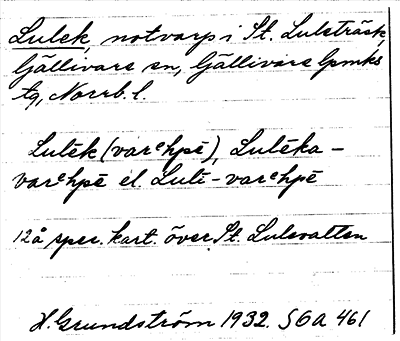 Lulek, notvarp i St. Lulsträsk,
Gällivare sn, Gällivare lpmks
tg, Norrb. l.
Lulēk (varᵉhpē), Lulēka-
varᵉhpē el. Lulē-varᵉhpē
12 å spec. kart. över St. Lulevatten
H. Grundström 1932. SOA 461